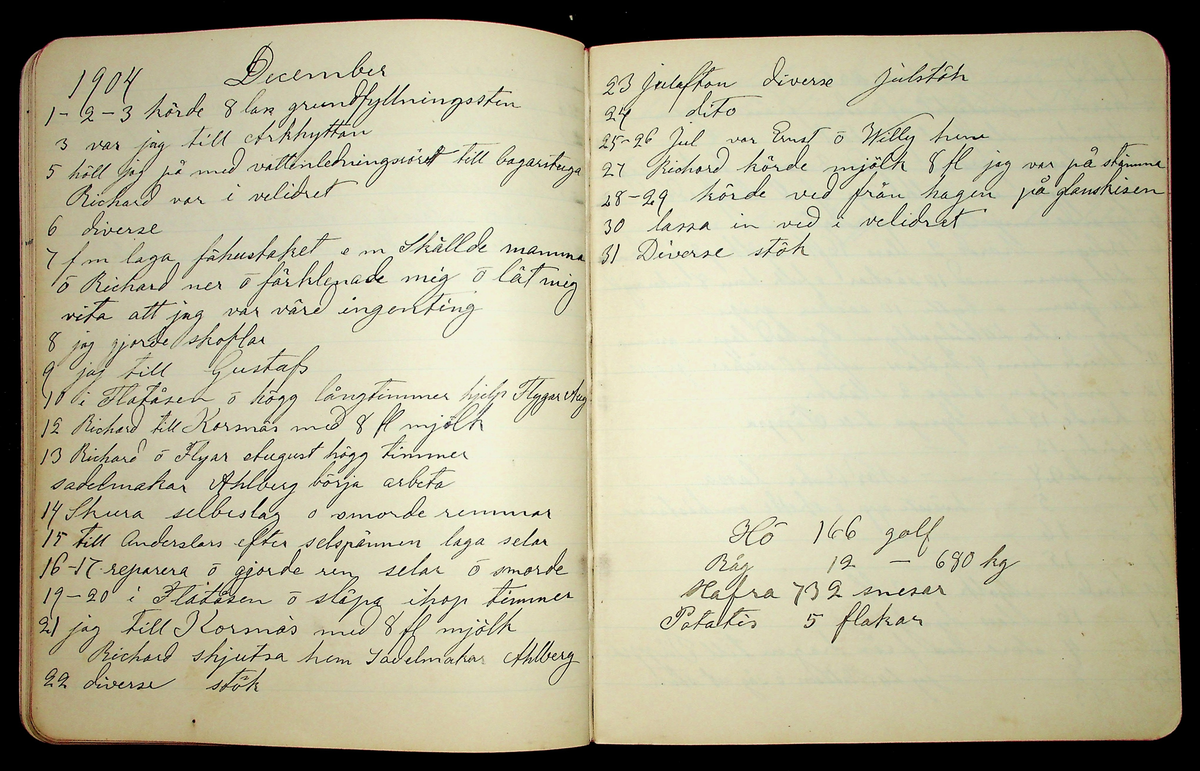 1904 December
1-2-3 körde 8 lass grundfyllningssten
3 var jag till Arkhyttan
5 höll jag på med vattenledningsröret till bagarstuga
Richard var i velidret
6 diverse
7 f m laga fähustaket e m Skällde mamma
ö Richard ner ö förklenade mig ö lät mig
vita att jag var värd ingenting
8 jag gjorde skoflar
9 jag till Gustafs
10 i Flatåsen ö högg långtimmer hjelp Flygar Aug.
12 Richard till Korsnäs med 8 fl mjölk
13 Richard ö Flyar August högg timmer
sadelmakar Ahlberg börja arbeta
14 Skura selbeslag o smorde remmar
15 till Anderslars efter selspännen laga selar
16-17 reparera ö gjorde ren selar ö smorde
19-20 i Flatåsen ö släpa ihop timmer
21 jag till Korsnäs med 8 fl mjölk
Richard skjutsa hem Sadelmakar Ahlberg
22 diverse stök
23 julafton diverse julstök
24 dito
25-26 Jul var Ernst ö Willy hem
27 Richard körde mjölk 8 fl jag var på stämma
28-29 körde ved från hagen på
30 lassa in ved i velidret
31 Diverse stök
Hö 166 golf
Råg 12 — 680 kg
Hafra 732 snesar
Potatis 5 flakar